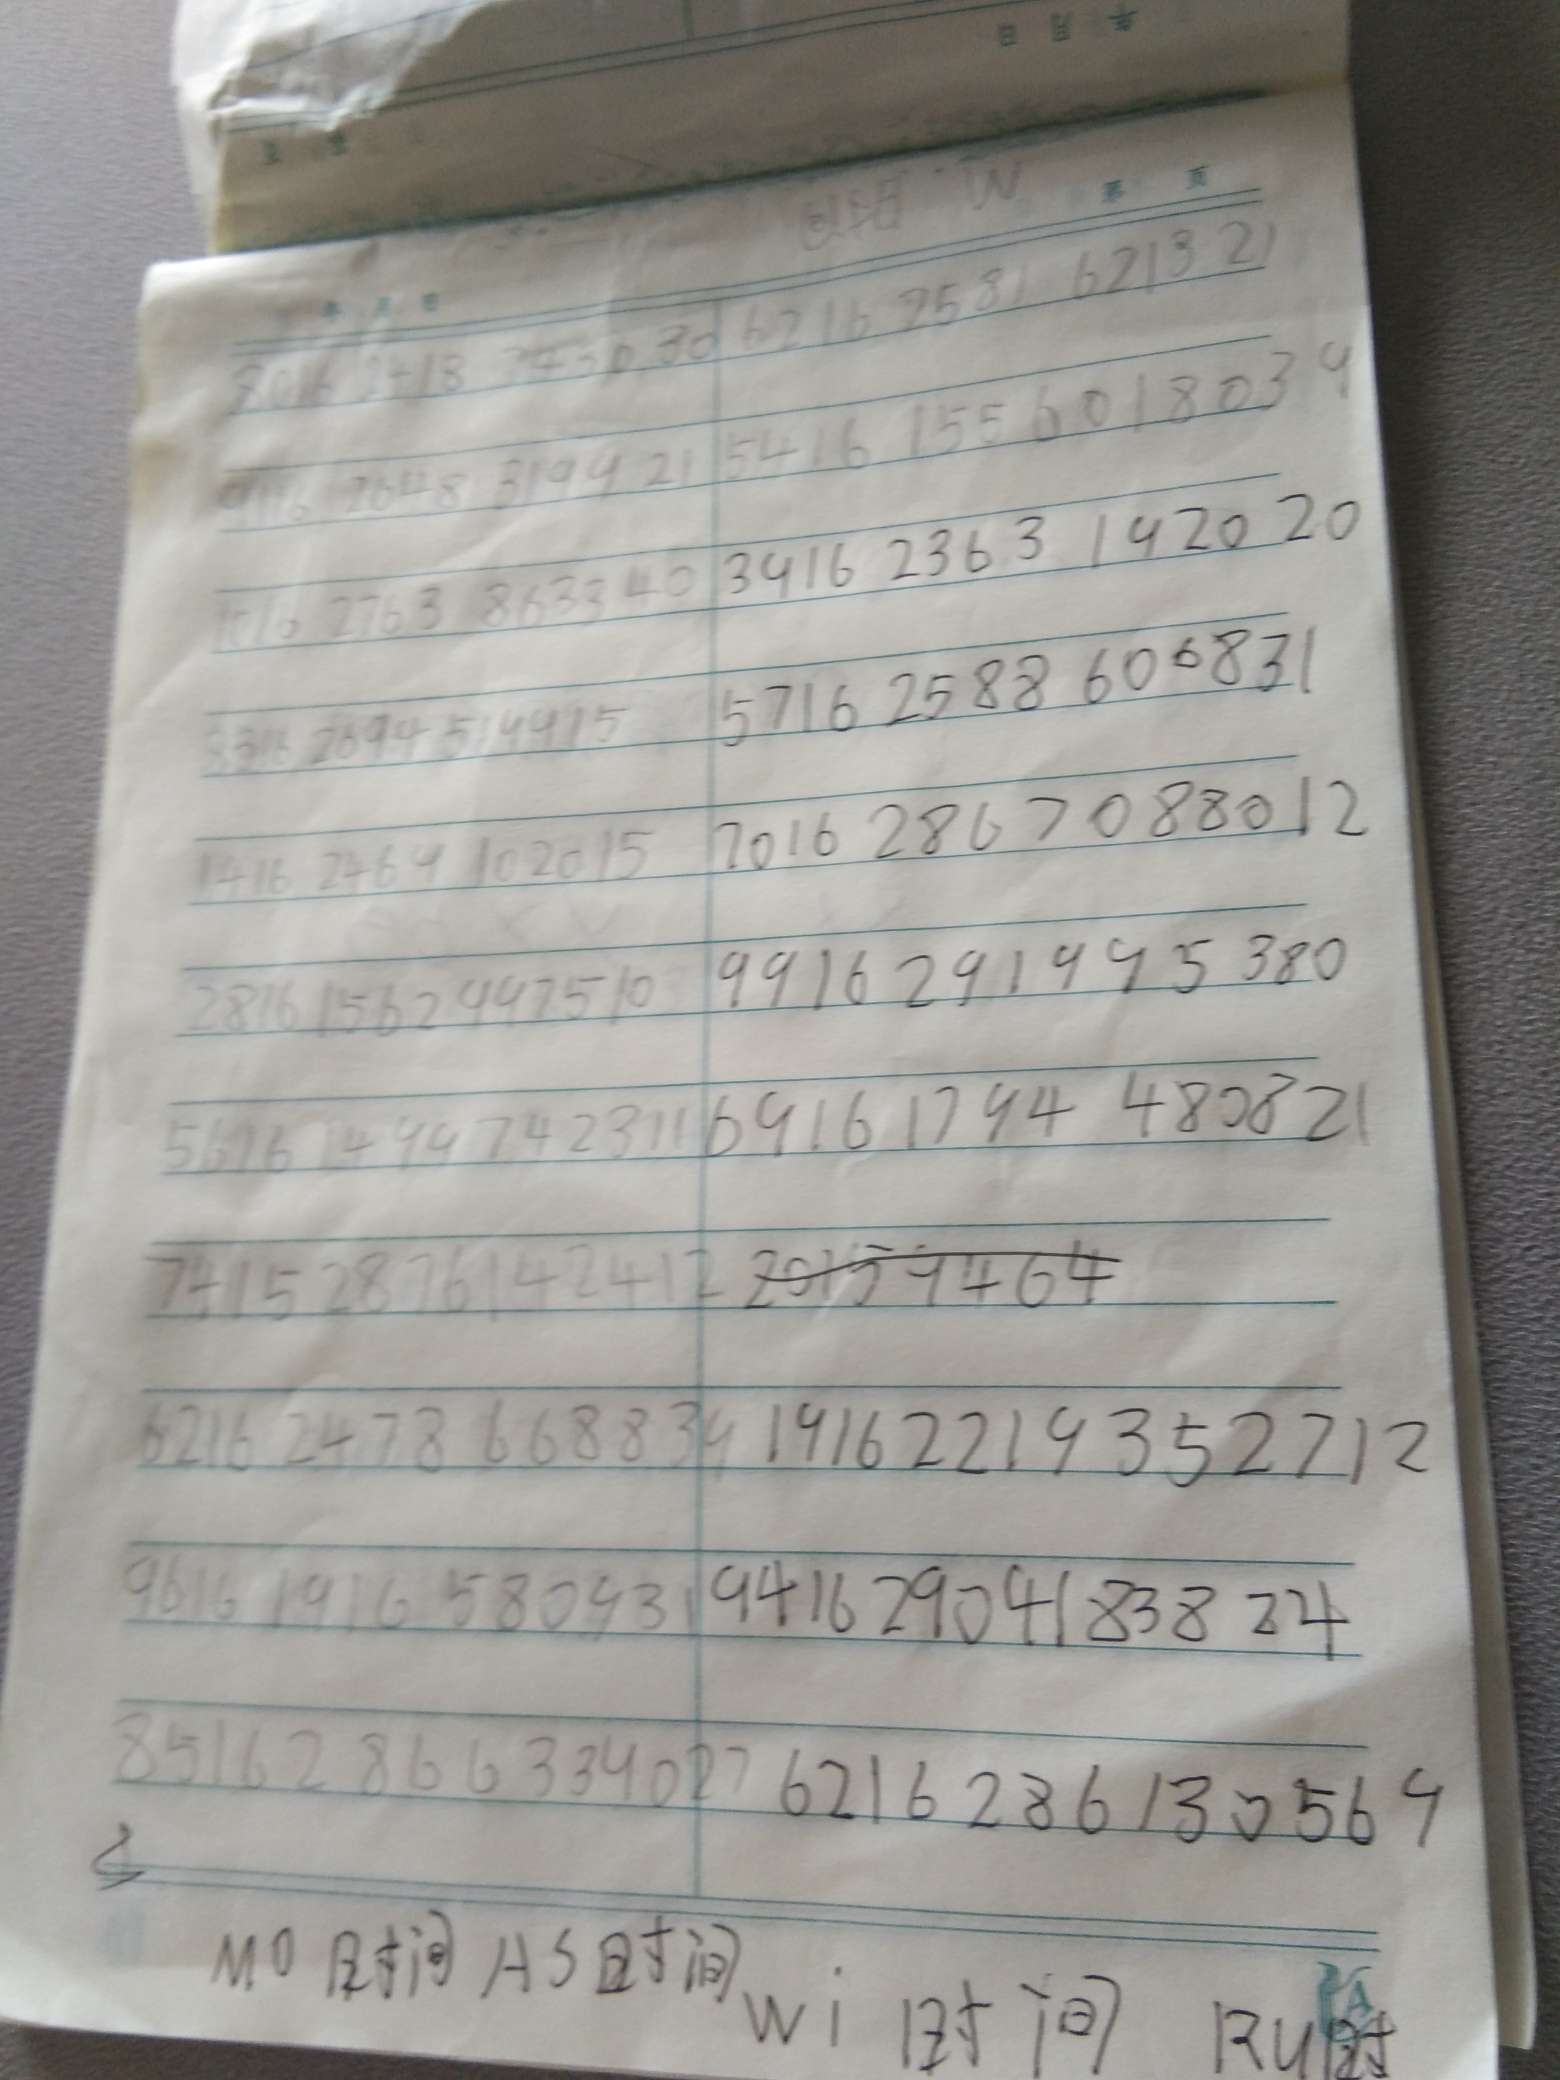 时间 W
第 页
年 月 日
8016 2418 30 6216 2581 6213 21
9116 2648 3199 21 5416 1556018034
1016 2763 8633 40 3416 2363 1920 20
2694 519915 5716 2588 606831
1416 2464 102015 7016 2867088012
2816 1562 992510 9916 291995 380
5616 1499 742311 6916 1794 480821
7415 2876142412 20159464
6216 2478 668834 1916 2219352712
9616 1916 580931 9416 29041838 24
8516 2866334027 6216 286130564
MO时间 AS时间
Wi 时间 RU时